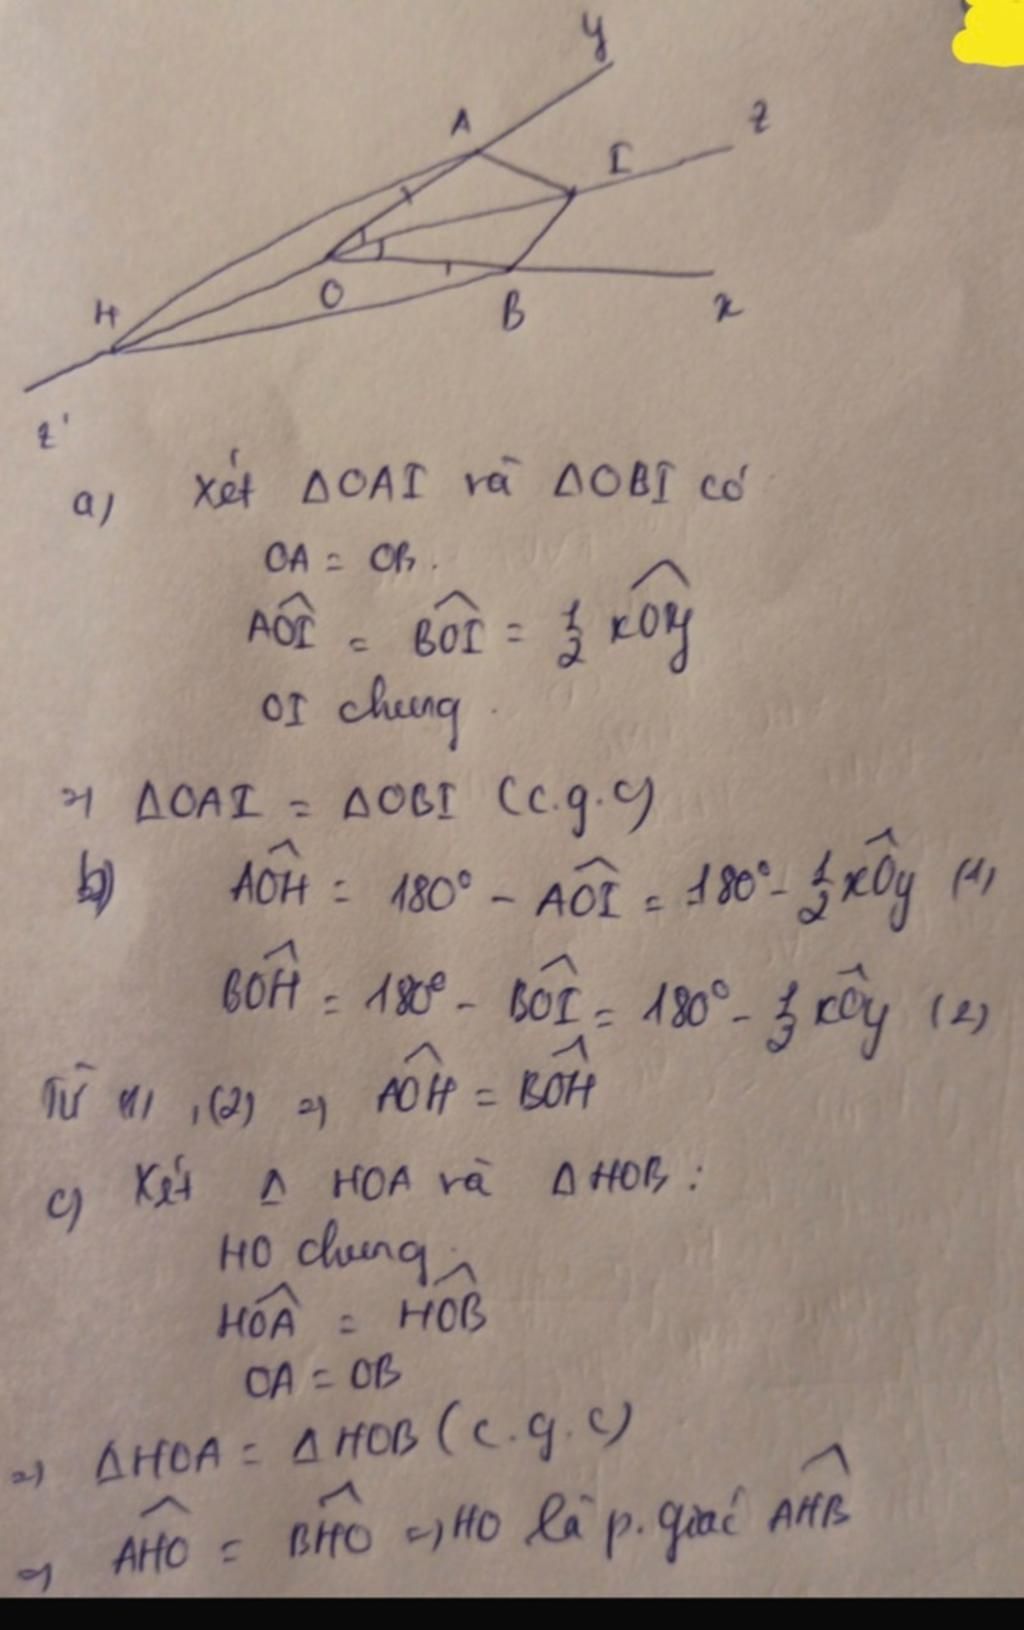 y
A
z
I
H
O
B
x
z'
a) Xét ΔOAI và ΔOBI có
OA = OB.
AÔI = BÔI = 1/2 xÔy
OI chung.
=> ΔOAI = ΔOBI (c.g.c)
b) AÔH = 180° - AÔI = 180° - 1/2 xÔy (1)
BÔH = 180° - BÔI = 180° - 1/2 xÔy (2)
Từ (1), (2) => AÔH = BÔH
c) Xét Δ HOA và Δ HOB:
HO chung.
HÔA = HÔB
OA = OB
=> ΔHOA = ΔHOB (c.g.c)
=> AĤO = BĤO => HO là p. giác AĤB